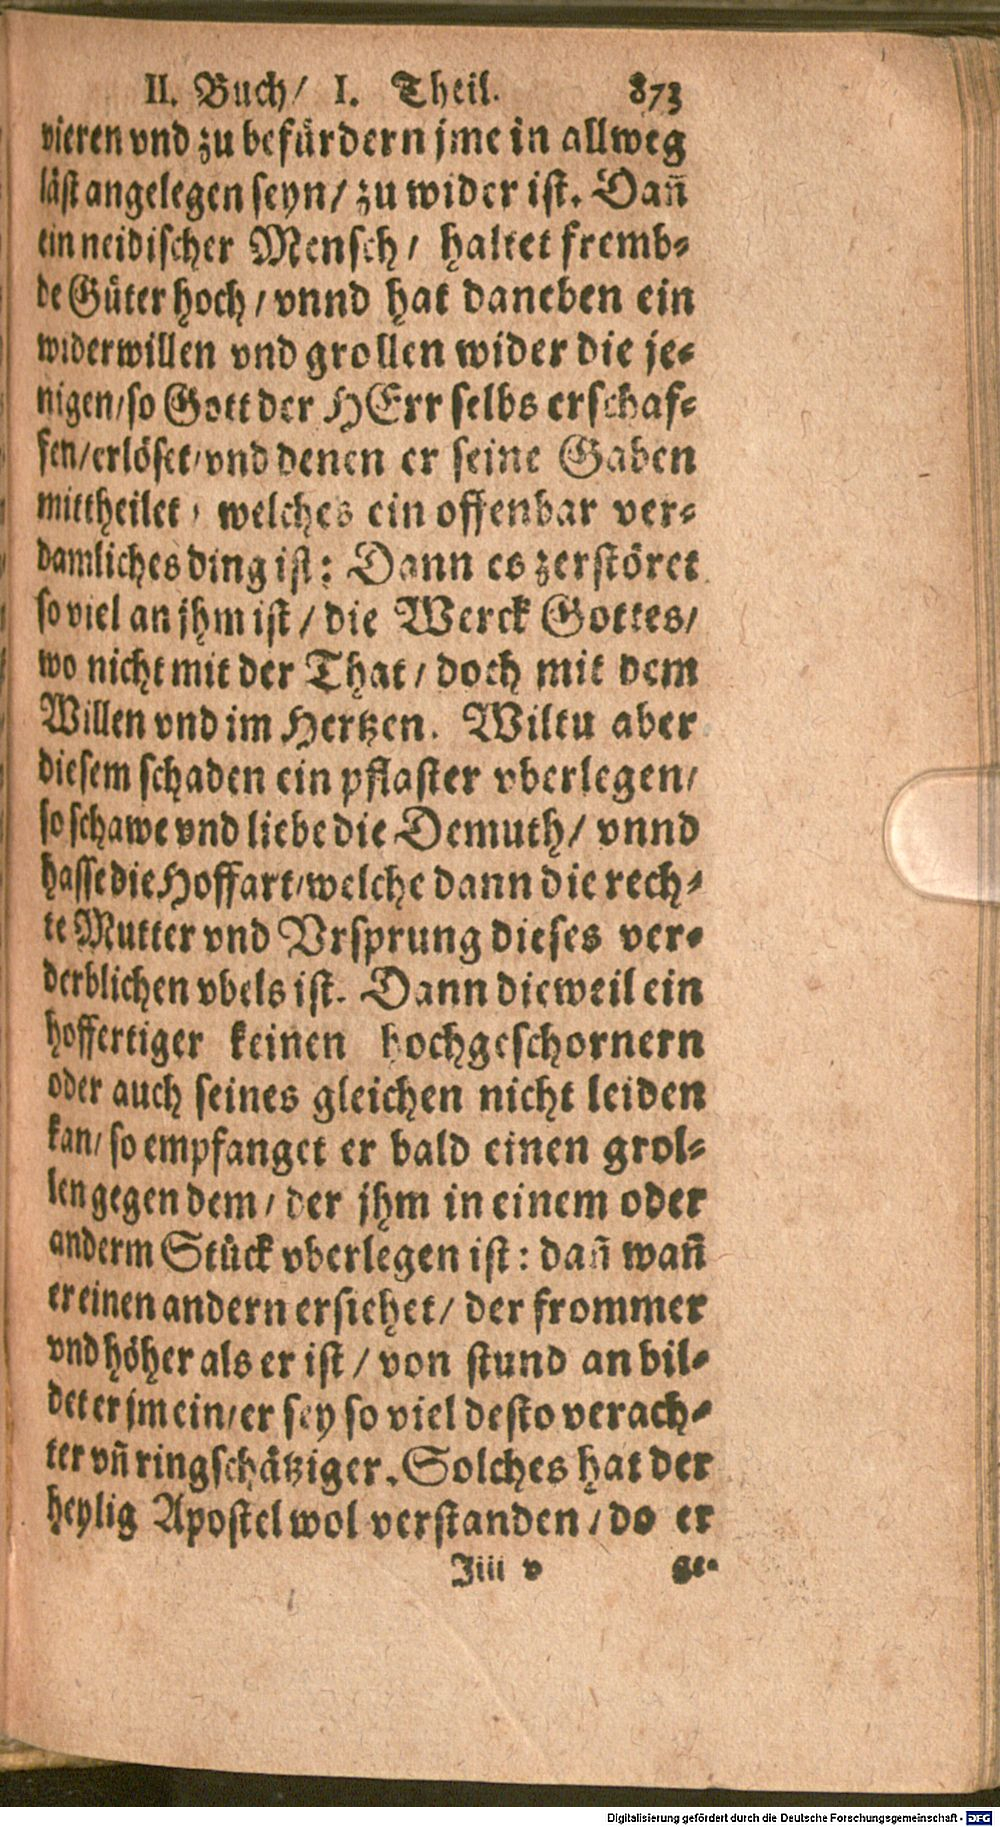 II. Buch/ I. Theil. 873
vieren vnd zu befürdern jme in allweg
läst angelegen seyn/ zu wider ist. Dañ
ein neidischer Mensch/ haltet fremb-
de Güter hoch/ vnnd hat daneben ein
widerwillen vnd grollen wider die je-
nigen/ so Gott der HErr selbs erschaf-
fen/ erlöset/ vnd denen er seine Gaben
mittheilet/ welches ein offenbar ver-
damliches ding ist: Dann es zerstöret
so viel an jhm ist/ die Werck Gottes/
wo nicht mit der That/ doch mit dem
Willen vnd im Hertzen. Wiltu aber
diesem schaden ein pflaster vberlegen/
so schawe vnd liebe die Demuth/ vnnd
hasse die Hoffart/ welche dann die rech-
te Mutter vnd Vrsprung dieses ver-
derblichen vbels ist. Dann dieweil ein
hoffertiger keinen hochgeschornern
oder auch seines gleichen nicht leiden
kan/ so empfanget er bald einen grol-
len gegen dem/ der jhm in einem oder
anderm Stück vberlegen ist: dañ wañ
er einen andern ersiehet/ der frommer
vnd höher als er ist/ von stund an bil-
det er jm ein/ er sey so viel desto verach-
ter vñ ringschätziger. Solches hat der
heylig Apostel wol verstanden/ do er
Jiii v ge-
Digitalisierung gefördert durch die Deutsche Forschungsgemeinschaft - DFG